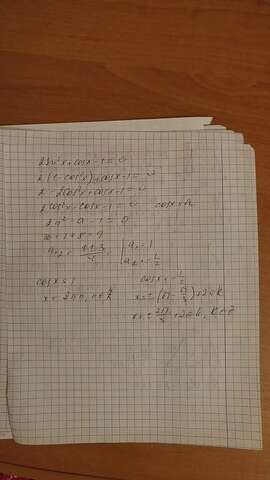 2sin²x+cosx-1=0
2(1-cos²x)+cosx-1=0
2-2cos²x+cosx-1=0
2cos²x-cosx-1=0 cosx=a
2a²-a-1=0
D=1+8=9
a₁,₂=(1±3)/4; a₁=1
a₂=-1/2
cosx=1 cosx=-1/2
x=2πn, n∈Z x=±(π-π/3)+2πk
x=±2π/3+2πk, k∈Z